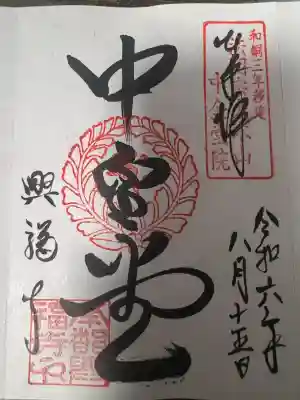 奉拝
和銅三年創建
令和六年
八月十五日
中金堂
興福寺